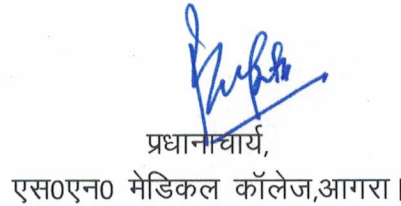 प्रधानाचार्य,
एस0एन0 मेडिकल कॉलेज,आगरा।